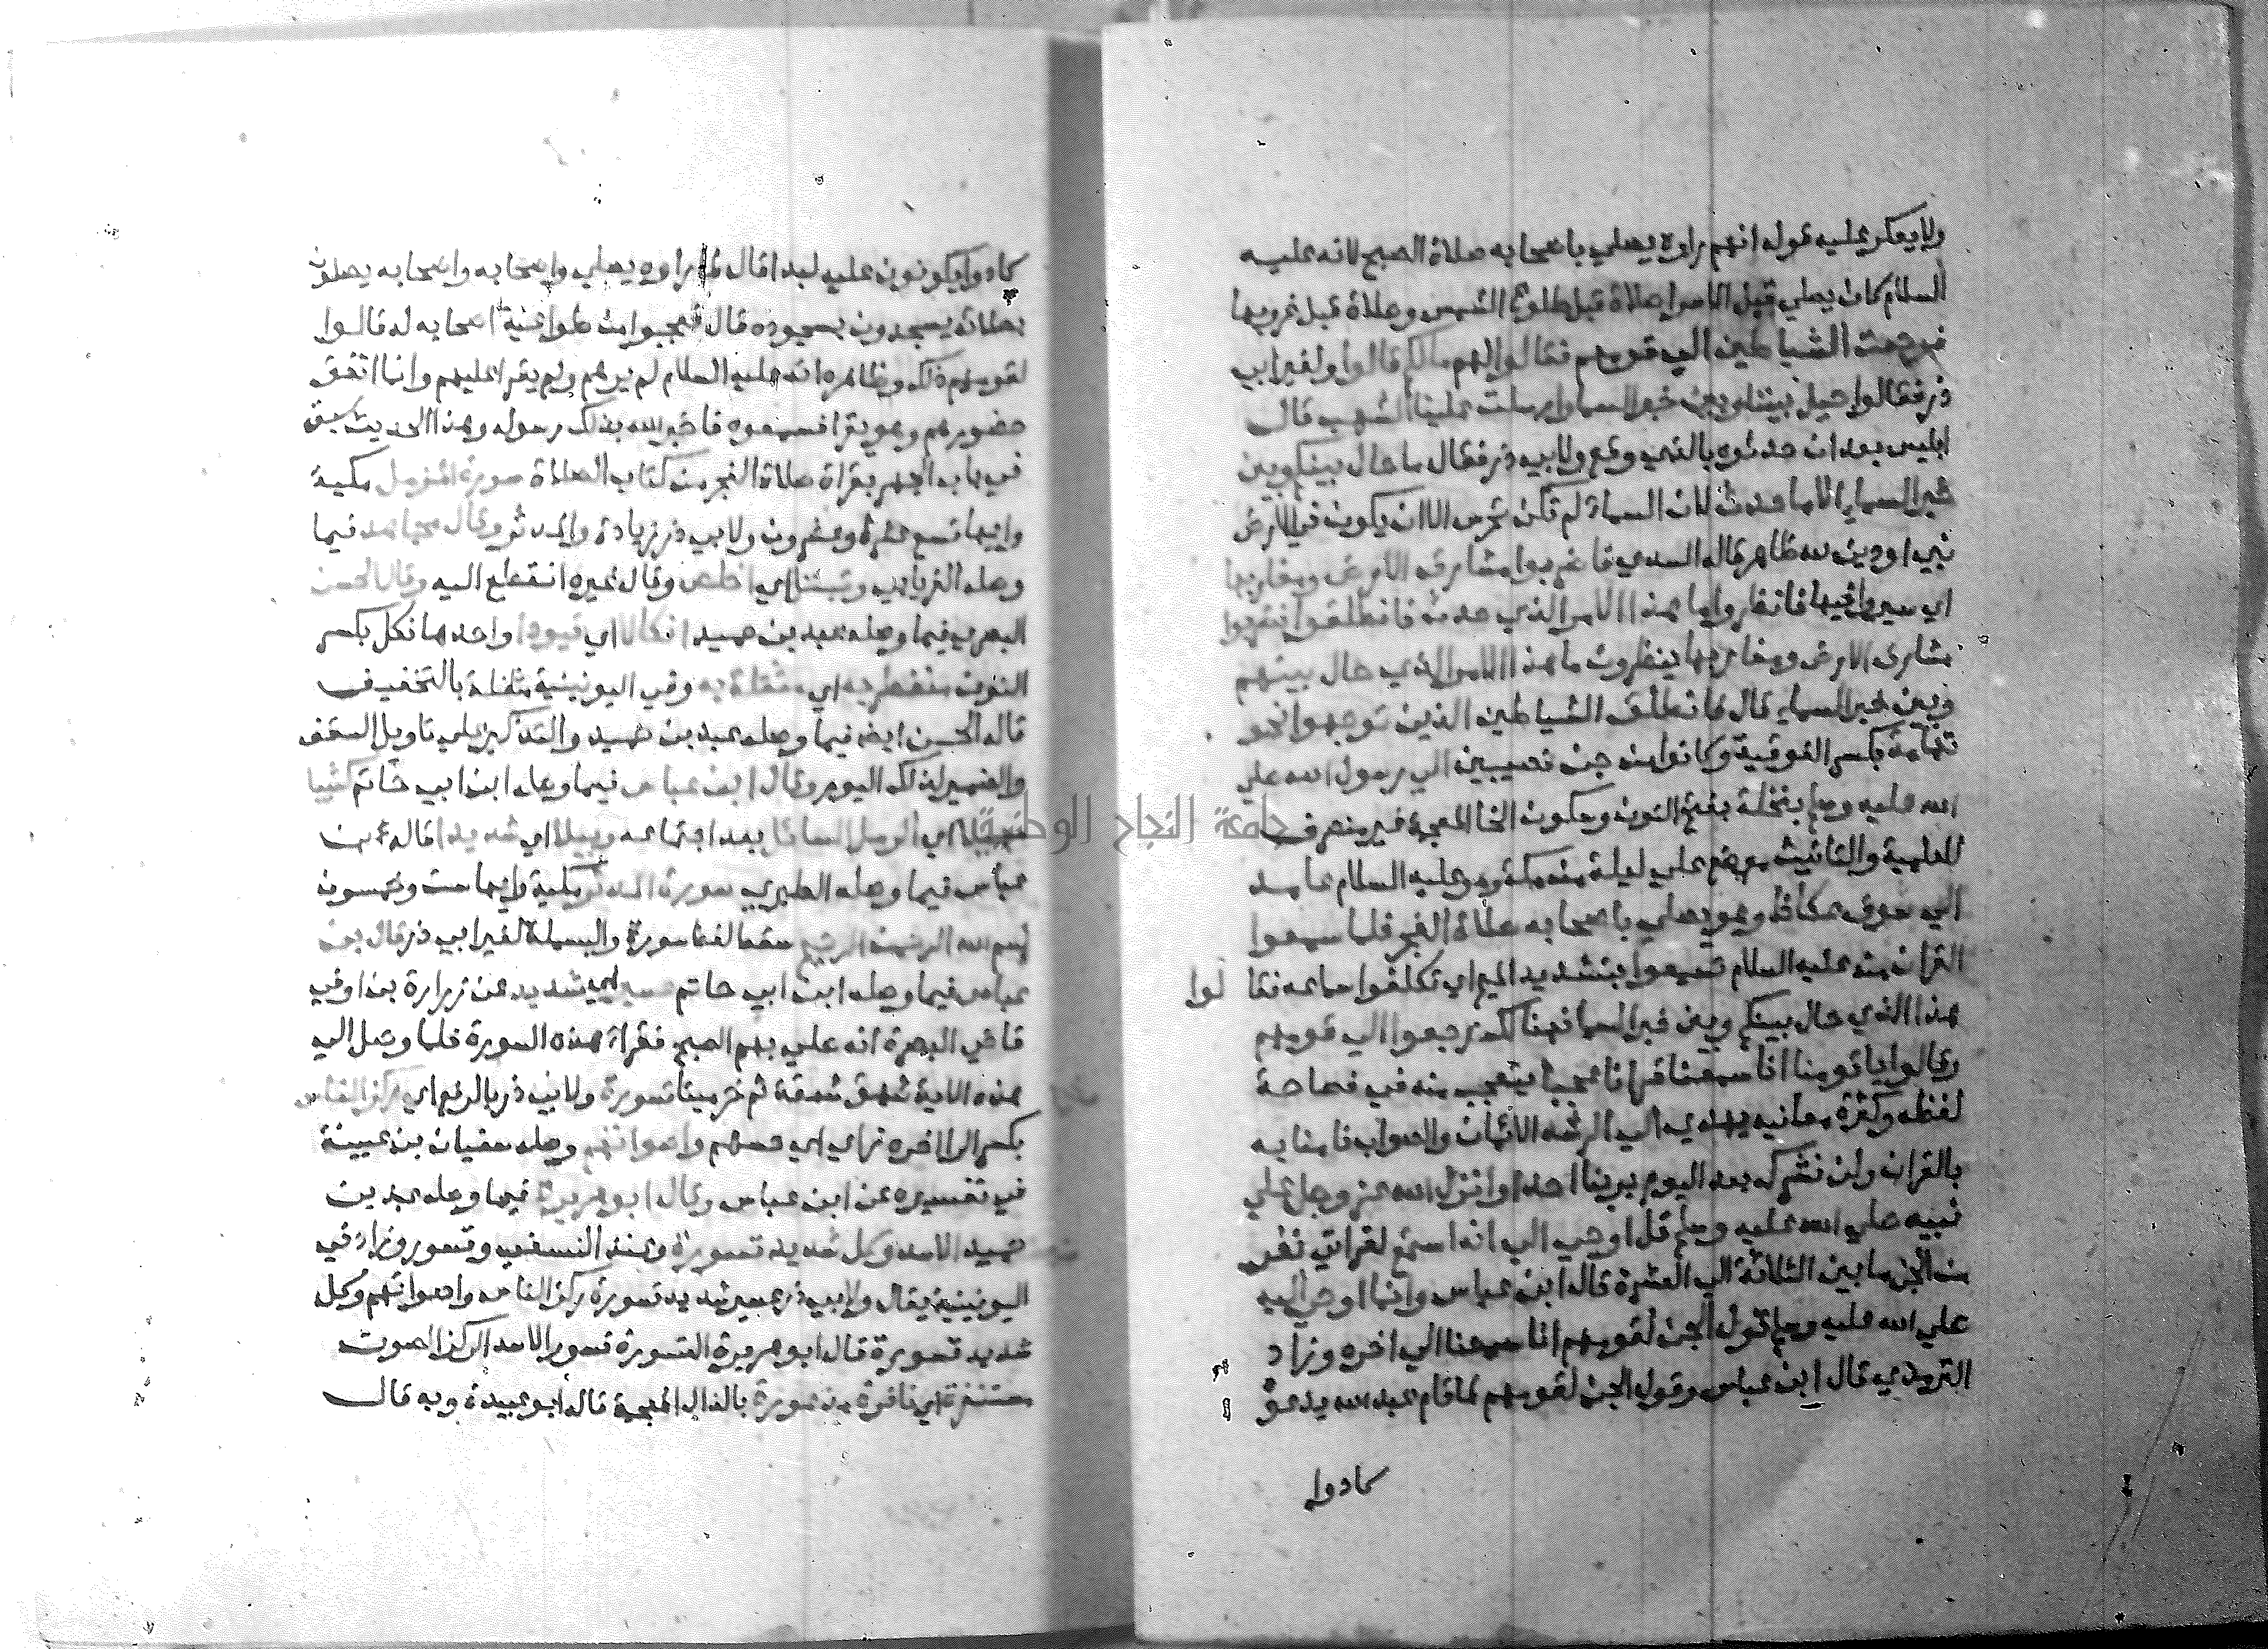 ولا يعكر عليه قوله انهم راوه يصلي باصحابه صلاة الصبح لانه عليه
السلام كان يصلي قبل الاسرا صلاة قبل طلوع الشمس وصلاة قبل غروبها
فرجعت الشياطين الي قومهم فقالوا لهم مالكم قالوا ولغير ابي
ذر فقالوا حيل بيننا وبين خبر السما وارسلت علينا الشهب قال
ابليس بعد ان حدثوه بالذي وقع ولابي ذر فقال ما حال بينكم وبين
خبر السما الا ما حدث لان السماء لم تكن تحرس الا ان يكون في الارض
نبي او دين لله ظاهر قاله السدي فاضربوا مشارق الارض ومغاربها
اي سيروا فيها فانظروا ما هذا الامر الذي حدث فانطلقوا فضربوا
مشارق الارض ومغاربها ينظرون ما هذا الامر الذي حال بينهم
وبين خبر السماء قال فانطلق الشياطين الذين توجهوا نحو
تهامة بكسر الفوقية وكانوا من جن نصيبين الي رسول الله صلي
الله عليه وسلم بنخلة بفتح النون وسكون الخا المعجمة غير منصرف
للعلمية والتانيث موضع علي ليلة من مكة وهو عليه السلام عامد
الي سوق عكاظ وهو يصلي باصحابه صلاة الفجر فلما سمعوا
القران منه عليه السلام تسمعوا بتشديد الميم اي تكلفوا سماعه فقا لوا
هذا الذي حال بينكم وبين خبر السما فهنالك رجعوا الي قومهم
وقالوا يا قومنا انا سمعنا قرانا عجبا يتعجب منه في فصاحة
لفظه وكثرة معانيه يهدي الي الرشد الايمان والصواب فامنا به
بالقران ولن نشرك بعد اليوم بربنا احدا وانزل الله عز وجل علي
نبيه صلي الله عليه وسلم قل اوحي الي انه استمع لقراتي نفر
من الجن ما بين الثلاثة الي العشرة قال ابن عباس وانما اوحي اليه
صلي الله عليه وسلم قول الجن لقومهم انا سمعنا الي اخره وزاد
الترمذي قال ابن عباس وقول الجن لقومهم لما قام عبد الله يدعو
كادوا
كادوا يكونون عليه لبدا قال لما راوه يصلي واصحابه واصحابه يصلون
بصلاته يسجدون بسجوده قال فعجبوا من طواعية اصحابه له قالوا
لقومهم ذلك وظاهره انه عليه السلام لم يرهم ولم يقرا عليهم وانما اتفق
حضورهم وهو يقرا فسمعوه فاخبر الله بذلك رسوله وهذا الحديث سبق
في باب الجهر بقراة صلاة الفجر من كتاب الصلاة سورة المزمل مكية
وايها تسع عشرة وعشرون ولابي ذر زيادة والمدثر وقال مجاهد فيما
وصله الفريابي وتبتل اي اخلص وقال غيره انقطع اليه وقال الحسن
البصري فيما وصله عبد بن حميد انكالا اي قيودا واحدها نكل بكسر
النون منفطر به اي مثقلة به وفي اليونينية مثقلة بالتخفيف
قاله الحسن ايضا فيما وصله عبد بن حميد والتذكير علي تاويل السقف
والضمير لذلك اليوم وقال ابن عباس فيما وصله ابن ابي حاتم كثيبا
مهيلا اي الرمل السائل بعد اجتماعه وبيلا اي شديدا قاله ابن
عباس فيما وصله الطبري سورة المدثر مكية وايها ست وخمسون
بسم الله الرحمن الرحيم سقط لفظ سورة والبسملة لغير ابي ذر قال ابن
عباس فيما وصله ابن ابي حاتم عسير اي شديد عن زرارة بن اوفي
قاضي البصرة انه صلي بهم الصبح فقرا هذه السورة فلما وصل الي
هذه الاية شهق شهقة ثم خر ميتا قسورة ولابي ذر بالرفع اي ركز الناس
بكسر الرا اخره زاي اي حسهم واصواتهم وصله سفيان بن عيينة
في تفسيره عن ابن عباس وقال ابو هريرة فيما وصله عبد بن
حميد الاسد وكل شديد قسورة وعند النسفي وقسور وزاد في
اليونينية يقال ولابي ذر عسير شديد قسورة ركز الناس واصواتهم وكل
شديد قسورة قال ابو هريرة القسورة قسور الاسد الركز الصوت
مستنفرة اي نافرة مذعورة بالذال المعجمة قاله ابو عبيدة وبه قال
جامعة النجاح الوطنية